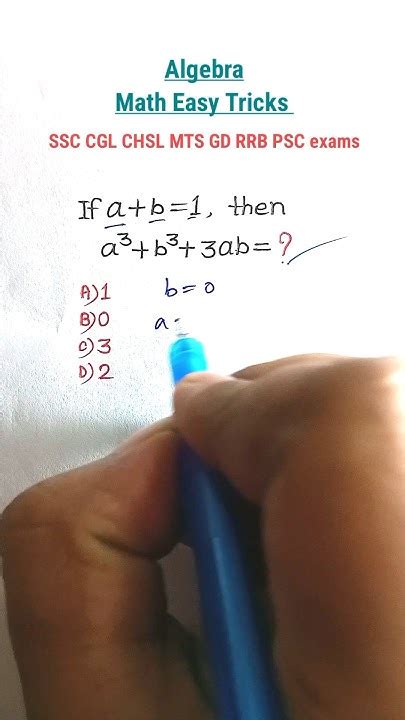 Algebra
Math Easy Tricks
SSC CGL CHSL MTS GD RRB PSC exams
If a+b=1, then
a³+b³+3ab=?
A) 1
b=0
B) 0
a=
C) 3
D) 2